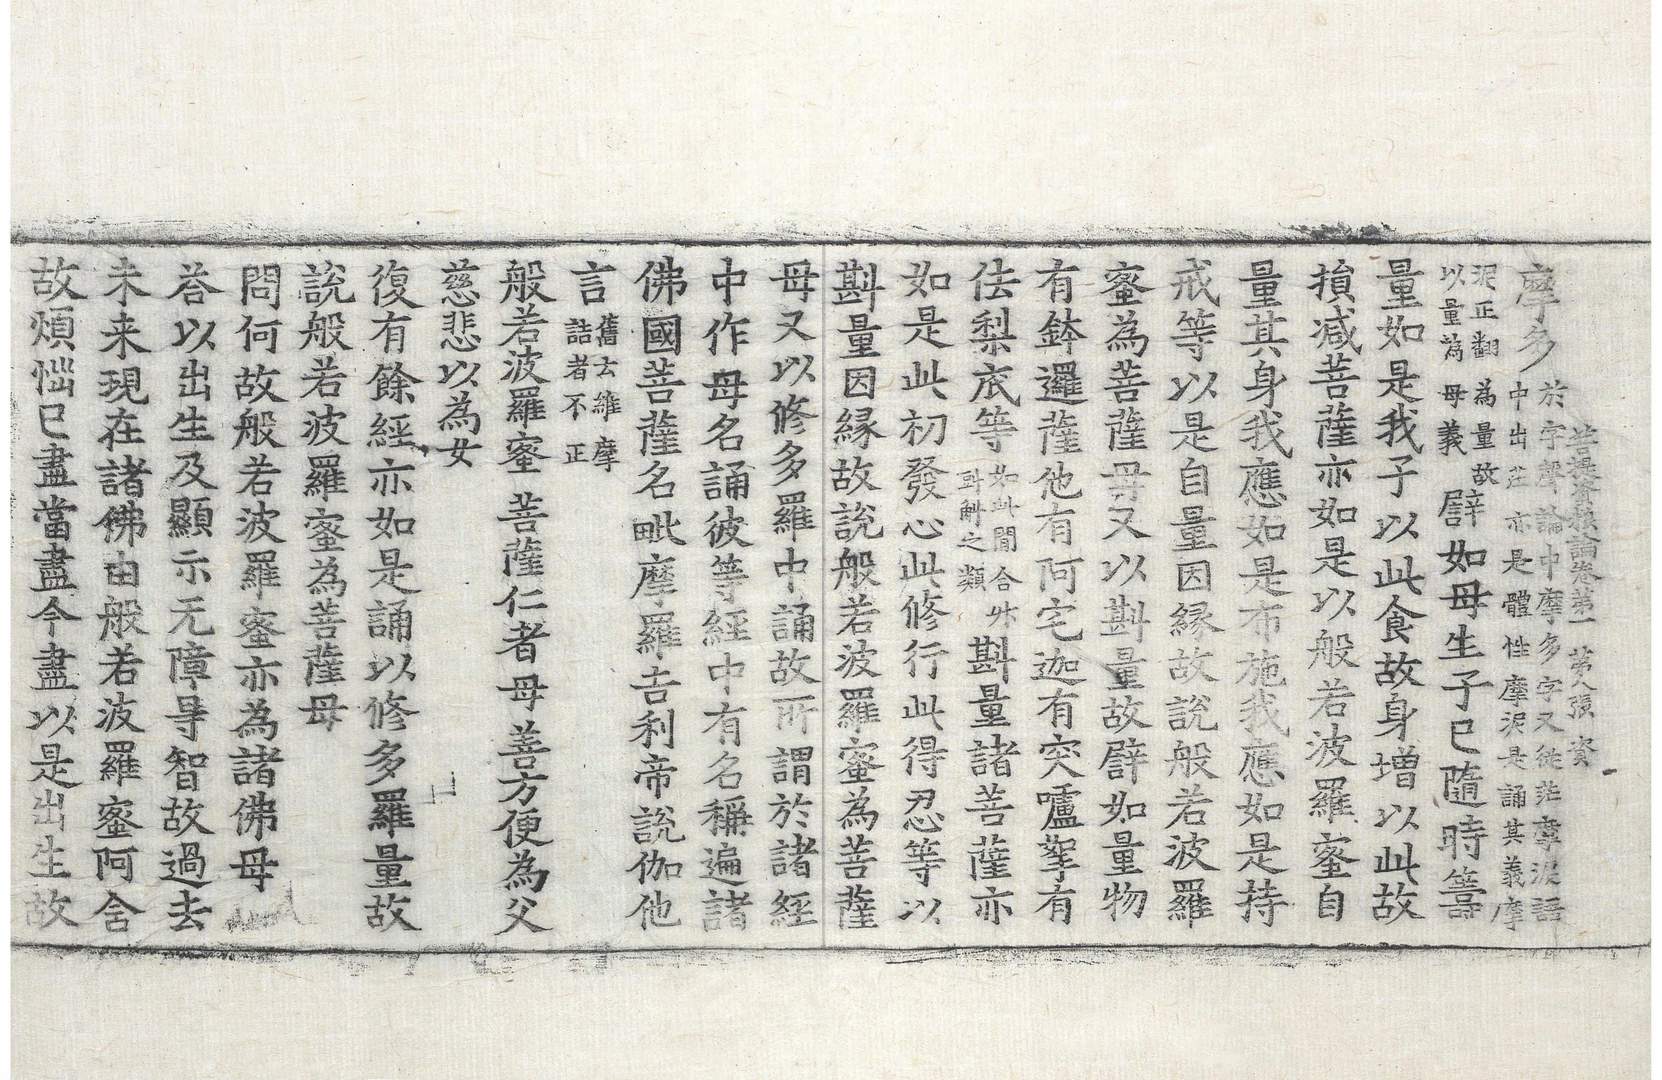 菩提資糧論卷第一 第八張 資
摩多 於字聲論中摩多字又從茫摩泥語
中出茫亦是體性摩泥是誦其義摩
泥正翻為量故
以量為母義 譬如母生子已隨時籌
量如是我子以此食故身增以此故
損減菩薩亦如是以般若波羅蜜自
量其身我應如是布施我應如是持
戒等以是自量因緣故說般若波羅
蜜為菩薩母又以斟量故譬如量物
有鉢邏薩他有阿宅迦有突嚧拏有
佉梨底等 如此間合升
㪷斛之類 斟量諸菩薩亦
如是此初發心此修行此得忍等以
斟量因緣故說般若波羅蜜為菩薩
母又以修多羅中誦故所謂於諸經
中作母名誦彼等經中有名稱遍諸
佛國菩薩名毗摩羅吉利帝說伽他
言 舊云維摩
詰者不正
般若波羅蜜 菩薩仁者母善方便為父
慈悲以為女
復有餘經亦如是誦以修多羅量故
說般若波羅蜜為菩薩母
問何故般若波羅蜜亦為諸佛母
荅以出生及顯示无障㝵智故過去
未来現在諸佛由般若波羅蜜阿含
故煩惱已盡當盡今盡以是出生故